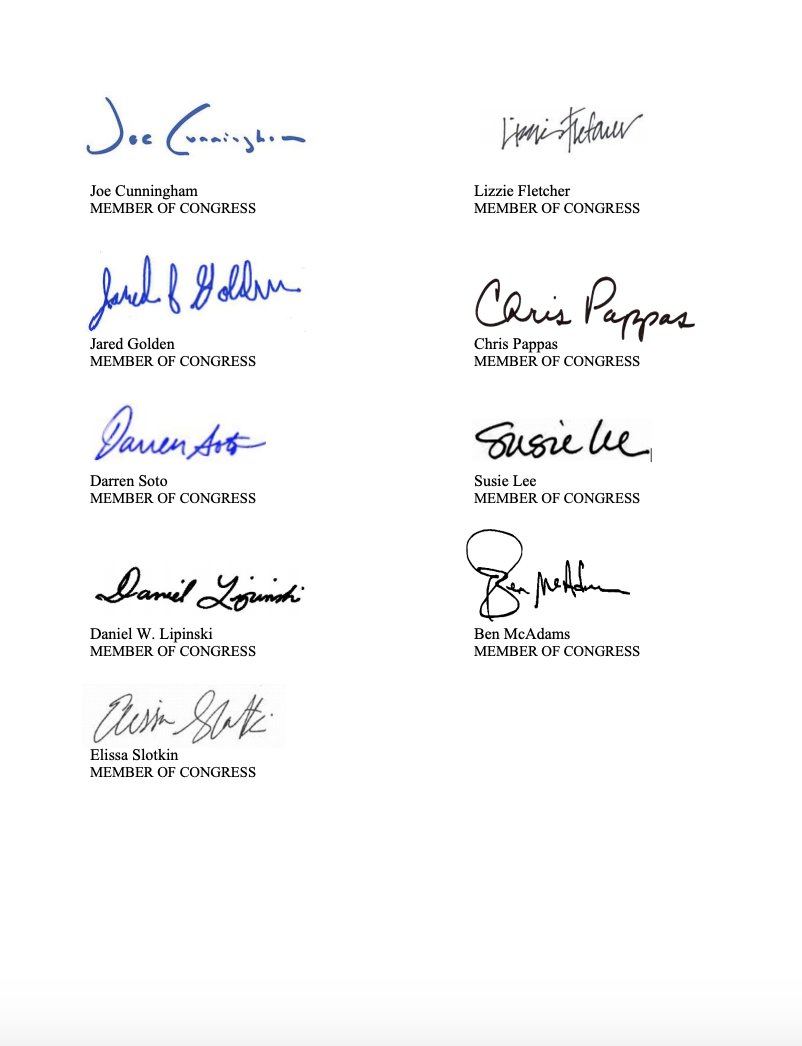 Joe Cunningham
Joe Cunningham
MEMBER OF CONGRESS
Lizzie Fletcher
Lizzie Fletcher
MEMBER OF CONGRESS
Jared F Golden
Jared Golden
MEMBER OF CONGRESS
Chris Pappas
Chris Pappas
MEMBER OF CONGRESS
Darren Soto
Darren Soto
MEMBER OF CONGRESS
Susie Lee
Susie Lee
MEMBER OF CONGRESS
Daniel Lipinski
Daniel W. Lipinski
MEMBER OF CONGRESS
Ben McAdams
Ben McAdams
MEMBER OF CONGRESS
Elissa Slotkin
Elissa Slotkin
MEMBER OF CONGRESS